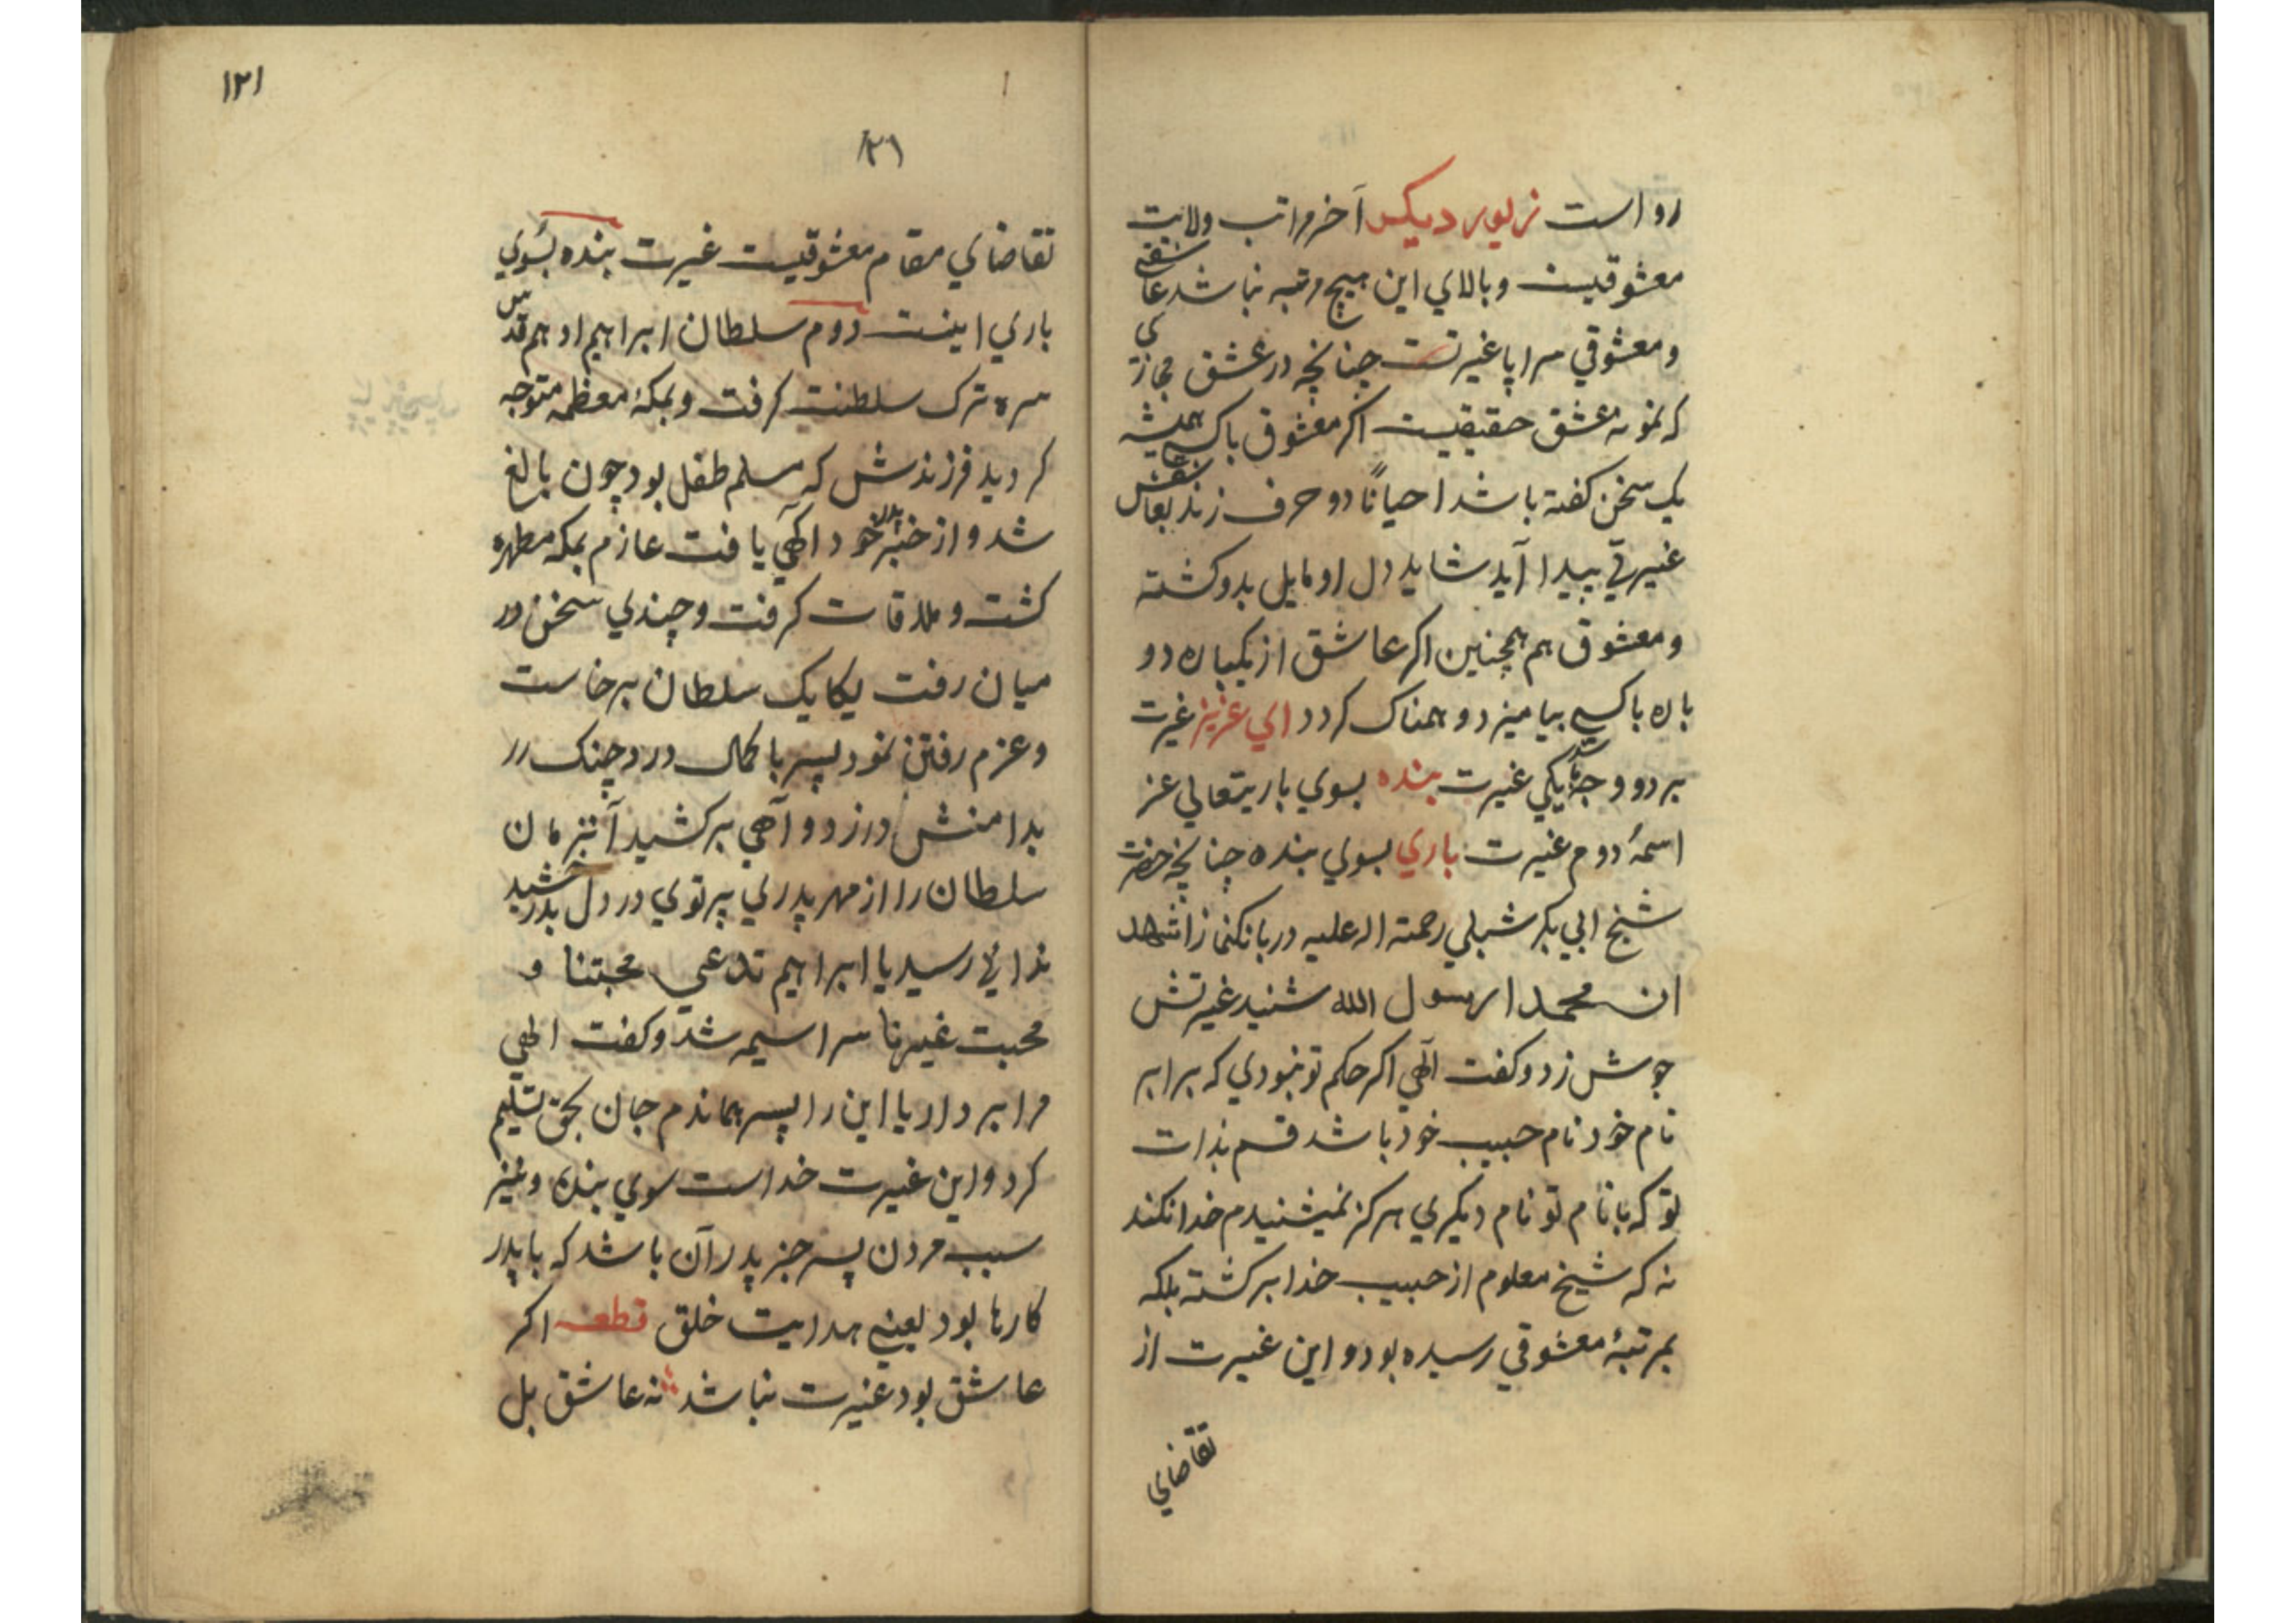 رواست زیور دیکر آخر مراتب ولایت
معشوقیست وبالاي این هیچ مرتبه نباشد عاشقي
ومعشوقي سراپا غیرتست چنانچه در عشق مجازي
که نمونه عشق حقیقیست اکر معشوق باکسي همیشه
یک سخن کفته باشد احیاناً دو حرف زند بعاشقش
غیرتي پیدا آید شاید دل او مایل بدو کشته
ومعشوق هم همچنین اکر عاشق از یکبار دو
بار باکسي بیامیزد وهمناک کردد اي عزیز غیرت
بر دو وجه باشد یکي غیرت بنده بسوي باریتعالي عز
اسمهٔ دوم غیرت باري بسوي بنده چنانچه حضرت
شیخ ابي بکر شبلي رحمته اله علیه در بانک نماز اشهد
ان محمدا رسول الله شنید غیرتش
جوش زد وکفت آلهي اکر حکم تو نبودي که برابر
نام خود نام حبیب خود باشد قسم بذات
تو که با نام تو نام دیکري هرکز نمیشنیدم خدا نکند
نه که شیخ معلوم از حبیب خدا برکشته بلکه
بمرتبهٔ معشوقي رسیده بود واین غیرت از
تقاضاي
۱۲۱
۱۲۱
تقاضاي مقام معشوقیست غیرت بنده بسوي
باري اینست دوم سلطان ابراهیم ادهم قدس
سره ترک سلطنت کرفت وبمکهٔ معظمه متوجه
کردید فرزندش که مسلم طفل بود چون بالغ
شد واز خبر پدر خود آکهي یافت عازم بمکه مطهره
کشت وملاقات کرفت وچندي سخن در
میان رفت یکایک سلطان برخاست
وعزم رفتن نمود پسر با کمال درد چنک در
بدامنش در زد وآهي برکشید آنزمان
سلطان را از مهر پدري پرتوي در دل بدرخشید
ندائي رسید یا ابراهیم تدعي محبتنا و
محبت غیرنا سراسیمه شد وکفت الهي
مرا بردار یا این را پسر هماندم جان بحق تسلیم
کرد واین غیرت خداست سوي بنده ونیز
سبب مردن پسر جز پدر آن باشد که با پدر
کارها بود یعني هدایت خلق قطعه اکر
عاشق بود غیرت نباشد نه عاشق بل